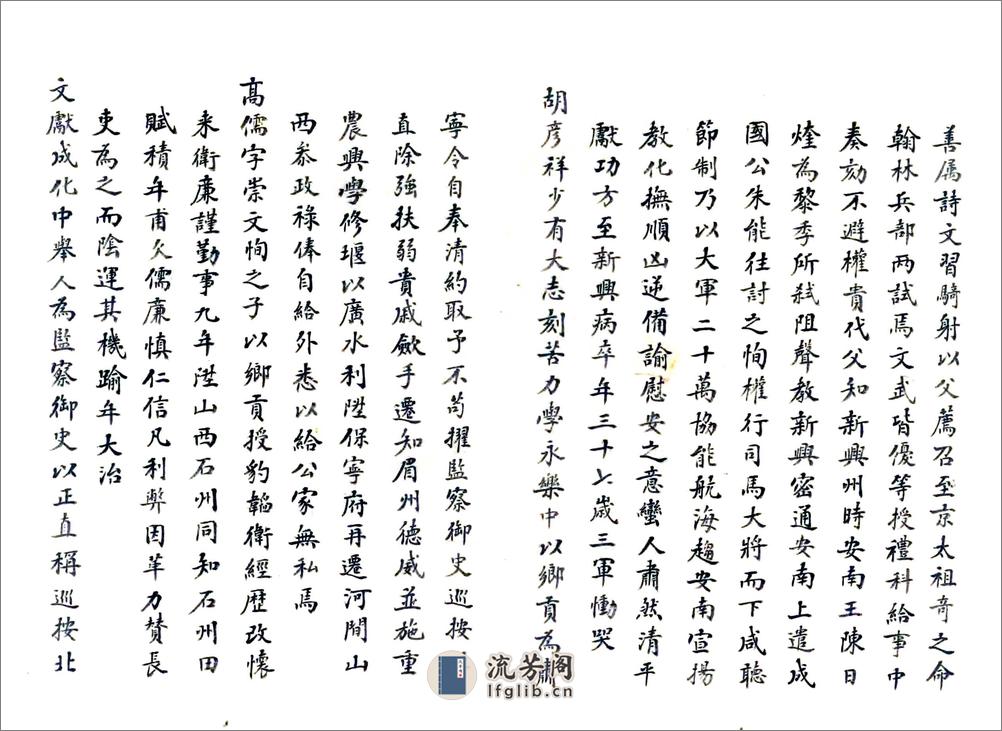 善属詩文習騎射以父薦召至京太祖奇之命
翰林兵部两試焉文武皆優等授禮科給事中
奏刻不避權貴代父知新興州時安南王陳日
煃為黎季所弑阻聲教新興密通安南上遣成
國公朱能往討之恂權行司馬大將而下咸聽
節制乃以大軍二十萬協能航海趨安南宣揚
教化撫順凶逆備諭慰安之意蠻人肅然清平
獻功方至新興病卒年三十七歲三軍慟哭
胡彦祥少有大志刻苦力學永樂中以鄉貢為肅
寧令自奉清約取予不苟擢監察御史巡按
直除強扶弱貴戚斂手遷知眉州德威並施重
農興學修堰以廣水利陞保寧府再遷河間山
西叅政祿俸自給外悉以給公家無私焉
高儒字崇文恂之子以鄉貢授豹韜衛經歷改懷
来衛廉謹勤事九年陞山西石州同知石州田
賦積年甫欠儒廉慎仁信凡利弊因革力賛長
吏為之而陰運其機踰年大治
文獻成化中舉人為監察御史以正直稱巡按北
流芳阁
lfglib.cn